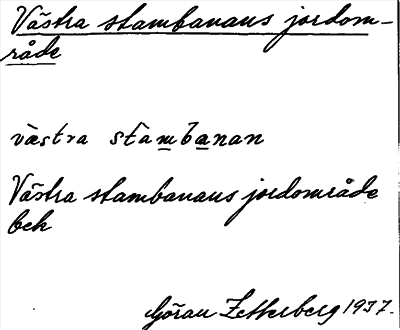 Västra stambanans jordom-
råde
västra stambanan
Västra stambanans jordområde
bek
Göran Zetterberg 1937.